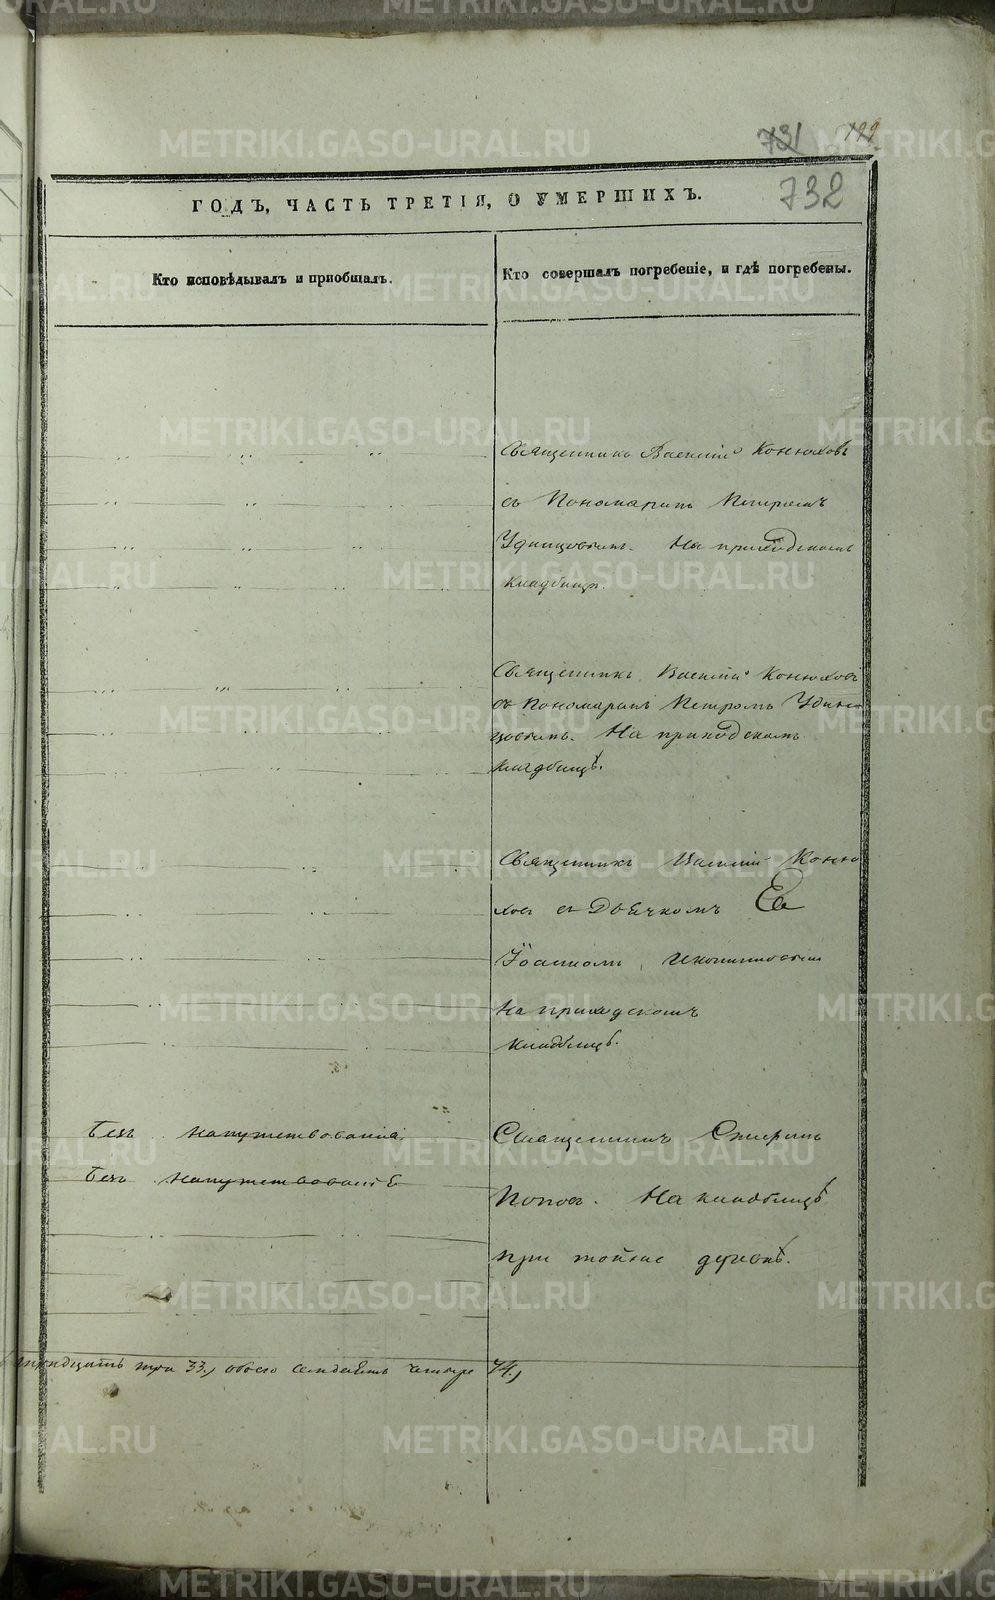 731 199
732
ГОДЪ, ЧАСТЬ ТРЕТІЯ, О УМЕРШИХЪ.
Кто исповѣдывалъ и приобщалъ.
Кто совершалъ погребеніе, и гдѣ погребены.
Священникъ Василій Конюховъ
съ Пономаремъ Петромъ
Удинцовымъ. На приходскомъ
кладбищѣ.
Священникъ Василій Конюховъ
съ Пономаремъ Петромъ Удин
цовымъ. На приходскомъ
кладбищѣ.
Священникъ Василій Коню
ховъ съ Дьячкомъ
На приходскомъ
кладбищѣ.
Безъ напутствованія.
Священникъ
Безъ напутствованія
Поповъ. На кладбищѣ
при деревнѣ.
тридцать три 33., обоего семдесятъ четыре 74.,
METRIKI.GASO-URAL.RU